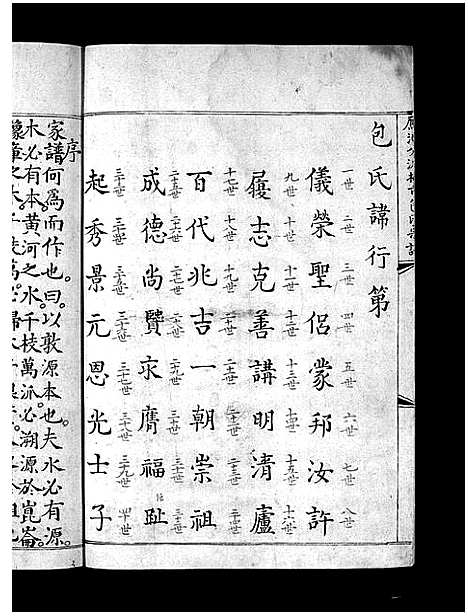 包氏諱行第
一世 二世 三世 四世 五世 六世 七世 八世
儀榮聖侶蒙邦汝許
九世 十世 十一世 十二世 十三世 十四世 十五世 十六世
履志克善講明清廬
十七世 十八世 十九世 二十世 二十一世 二十二世 二十三世 二十四世
百代兆吉一朝崇祖
二十五世 二十六世 二十七世 二十八世 二十九世 三十世 三十一世 三十二世
成德尚賢永膺福祉
三十三世 三十四世 三十五世 三十六世 三十七世 三十八世 三十九世 四十世
起秀景元恩光士子
序
家譜何爲而作也曰以敦源本也夫水必有源
木必有本黃河之水千枝萬派必溯源於崑崙
豫章之木千枝萬